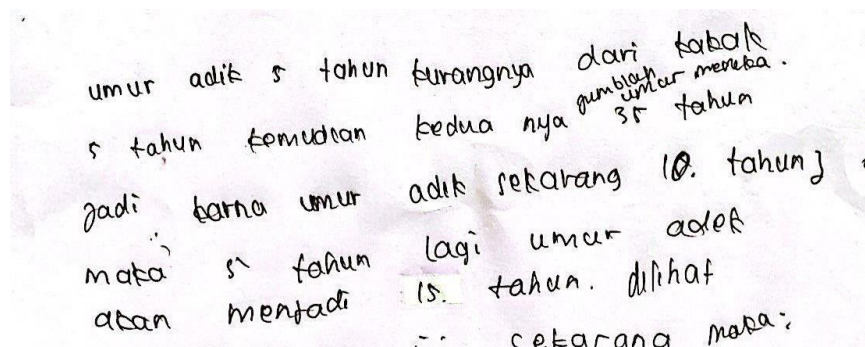 umur adik 5 tahun kurangnya dari kakak
5 tahun kemudian kedua nya jumblah umur mereka. 35 tahun
jadi karna umur adik sekarang 10. tahun
maka 5 tahun lagi umur adek
akan menjadi 15. tahun. dilihat
sekarang maka: